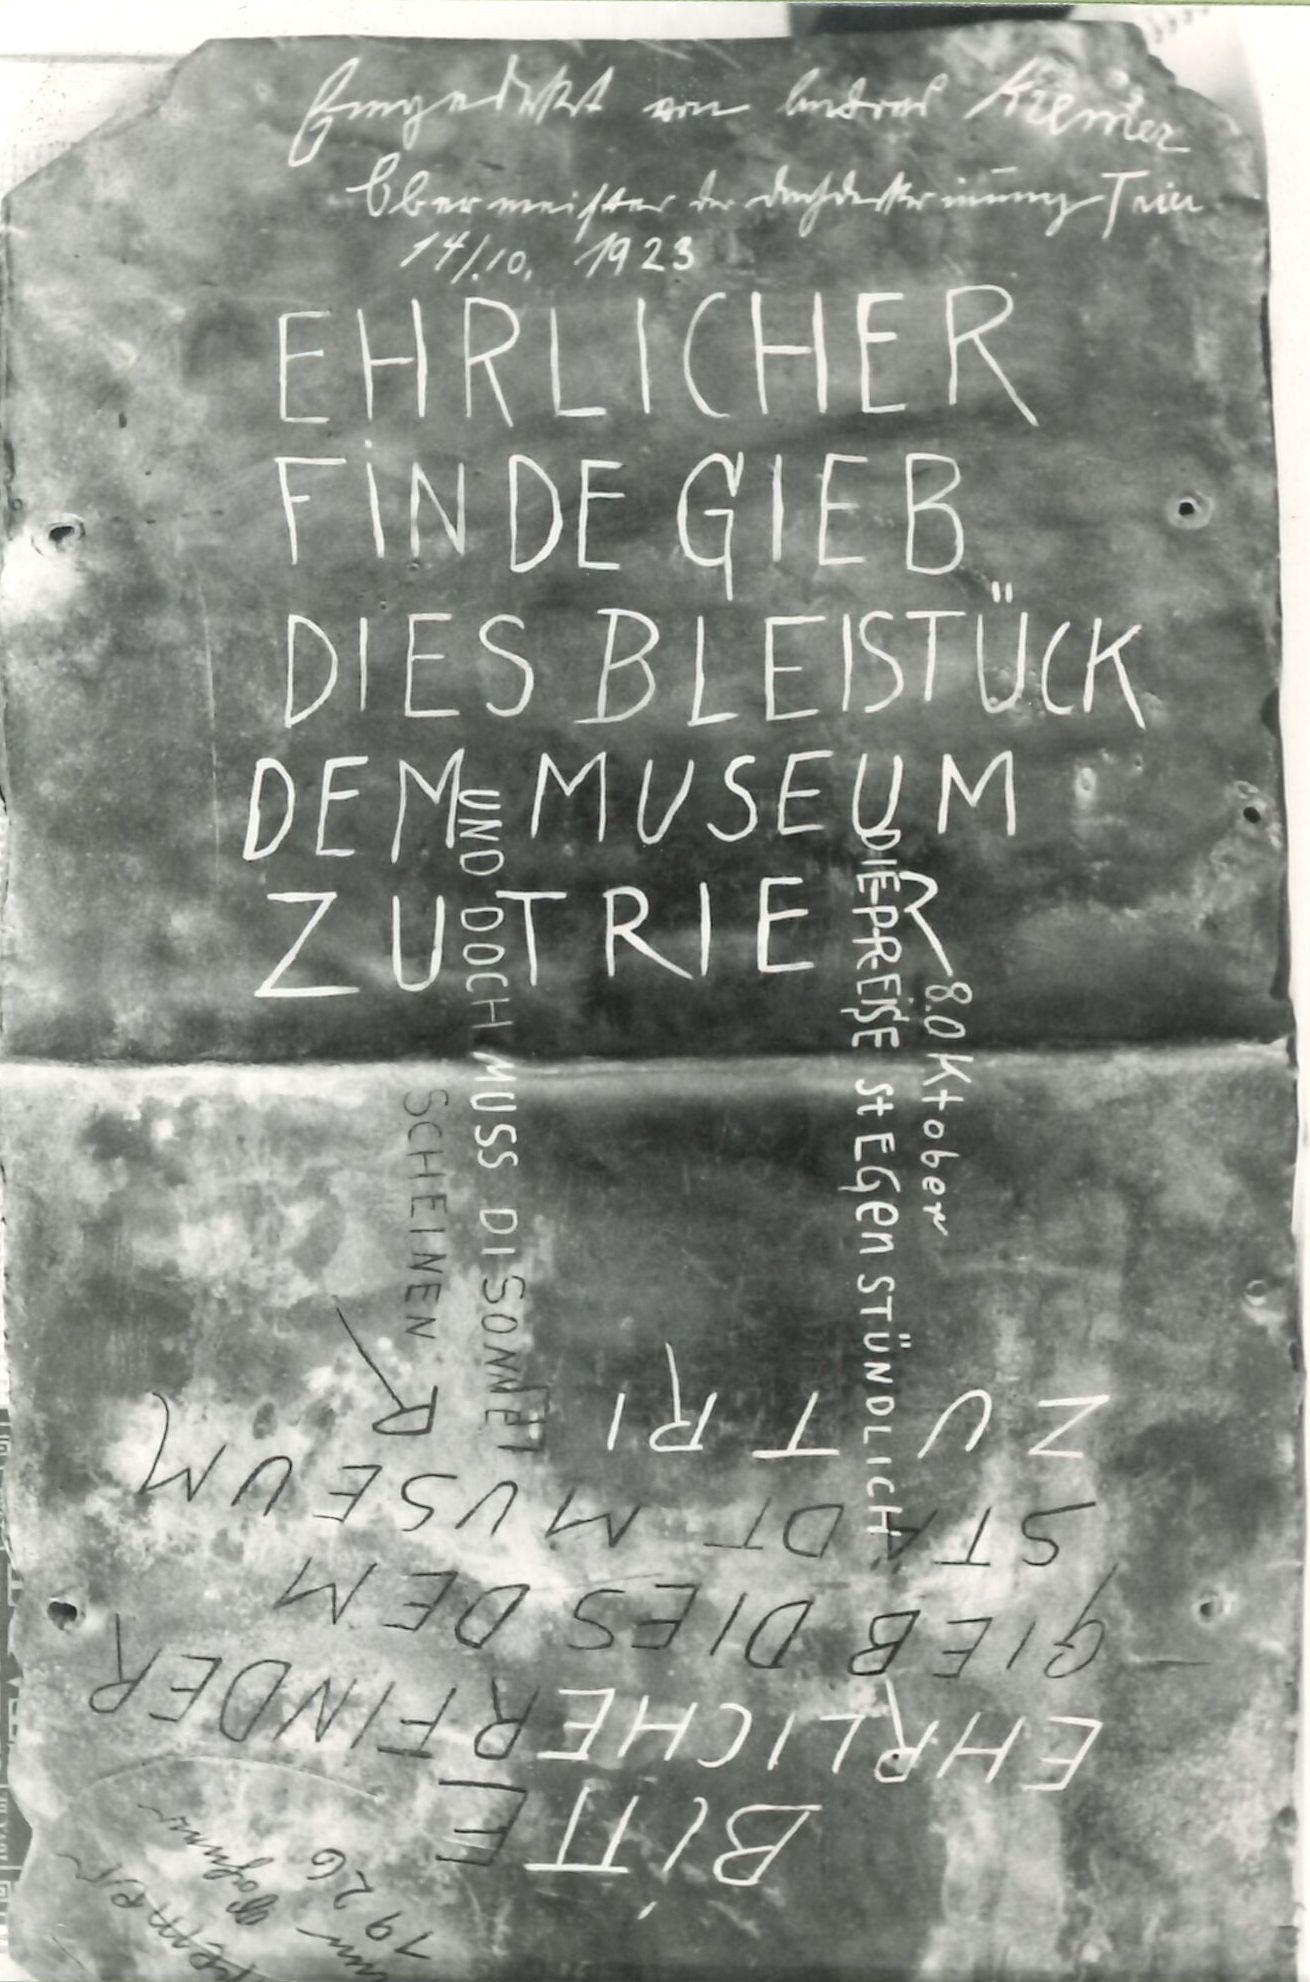 Eingedeckt von Andreas Kremer
Obermeister der Dachdecker innung Trier
14/.10. 1923
EHRLICHER
FINDE GIEB
DIES BLEISTÜCK
DEM MUSEUM
ZU TRIER
8.OKtober
DIE PREISE StEGen STÜNDLICH
UND DOCH MUSS DI SONNE
SCHEINEN
BITTE
EHRLICHER FINDER
GIEB DIES DEM
STADT MUSEUM
ZU TRIER
1926